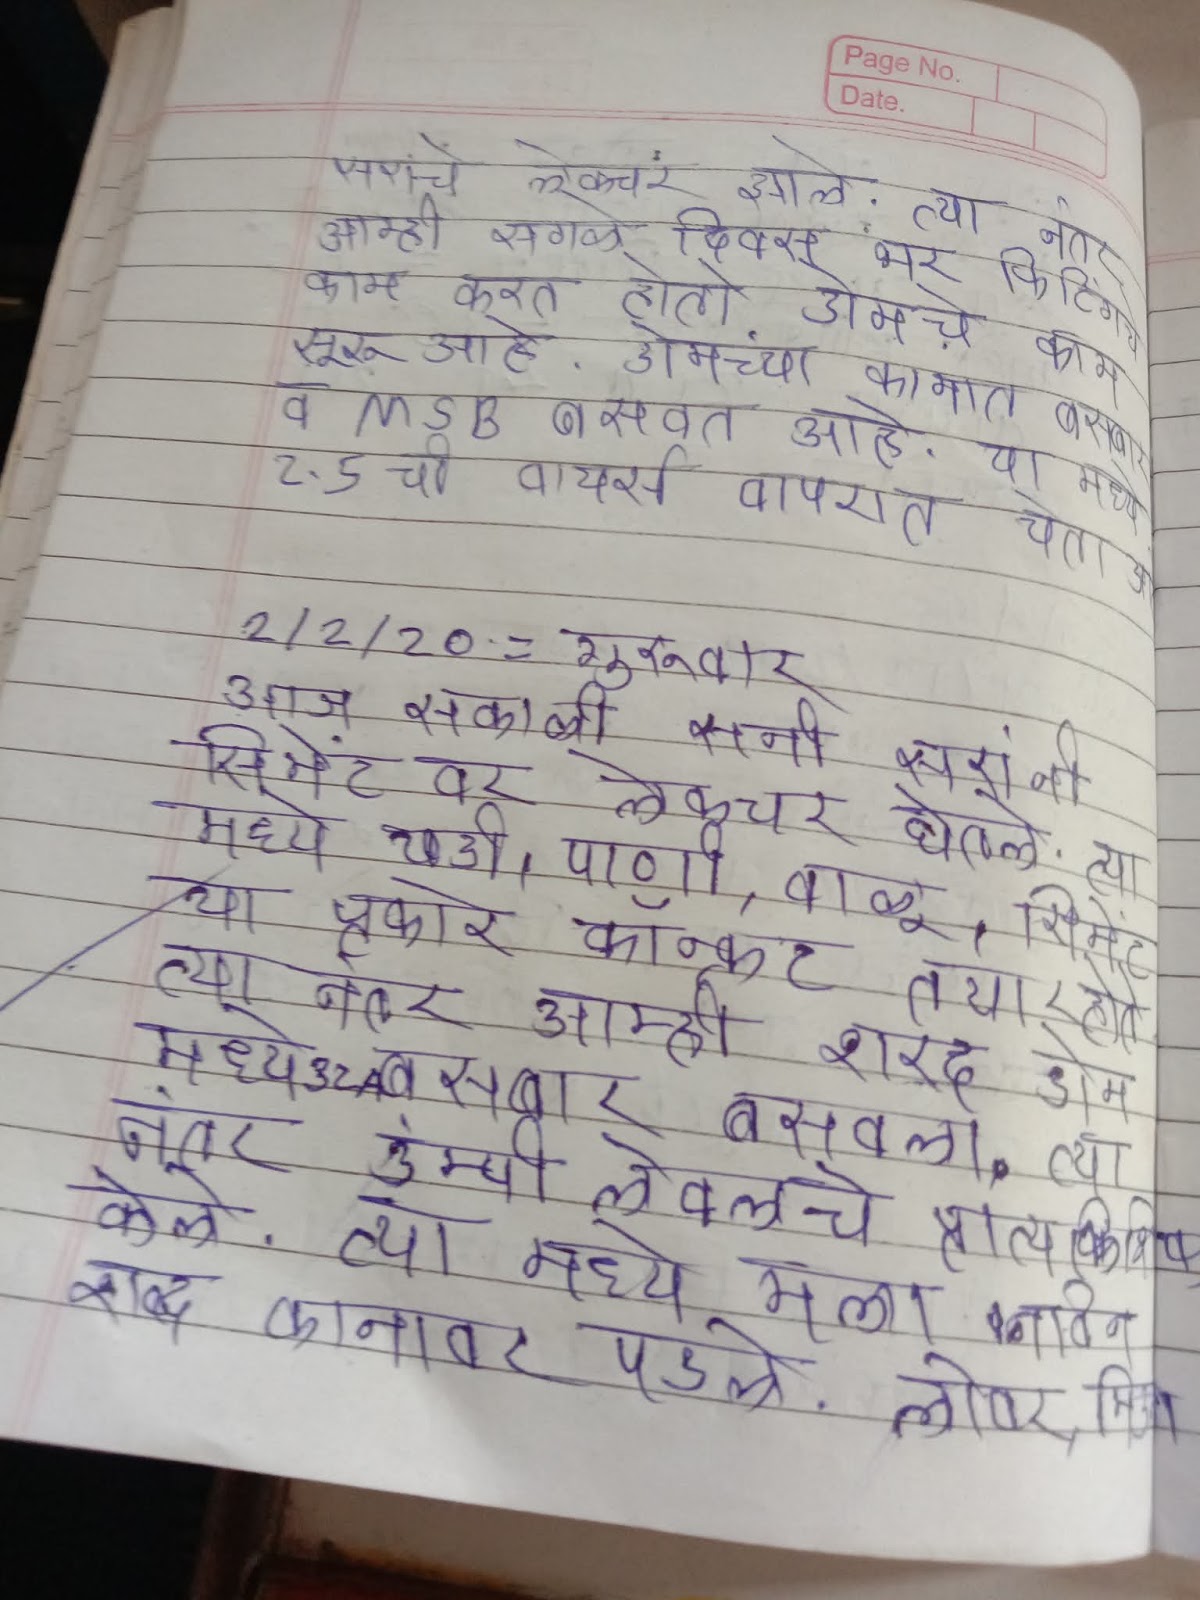 Page No.
Date.
सरांचे लेक्चरं झाले. त्या नंतर
आम्ही सगळे दिवस भर किटिंगचे
काम करत होतो. डोमचे काम
सूरू आहे. डोमच्या कामात बसबार
व MSB बसवत आहे. या मध्ये
2.5 ची वायर्स वापरात येता
2/2/20 = शुक्रवार
आज सकाळी सनी सरांनी
सिमेंट वर लेक्चर घेतले. त्या
मध्ये खडी, पाणी, वाळू, सिमेंट
या प्रकारे कॉन्क्रट तयार होते
त्या नंतर आम्ही शरद डोम
मध्ये 32A बसबार बसवला. त्या
नंतर डंम्पी लेवलचे
केले. त्या मध्ये मला नविन
शब्द कानावर पडले. लोवर,